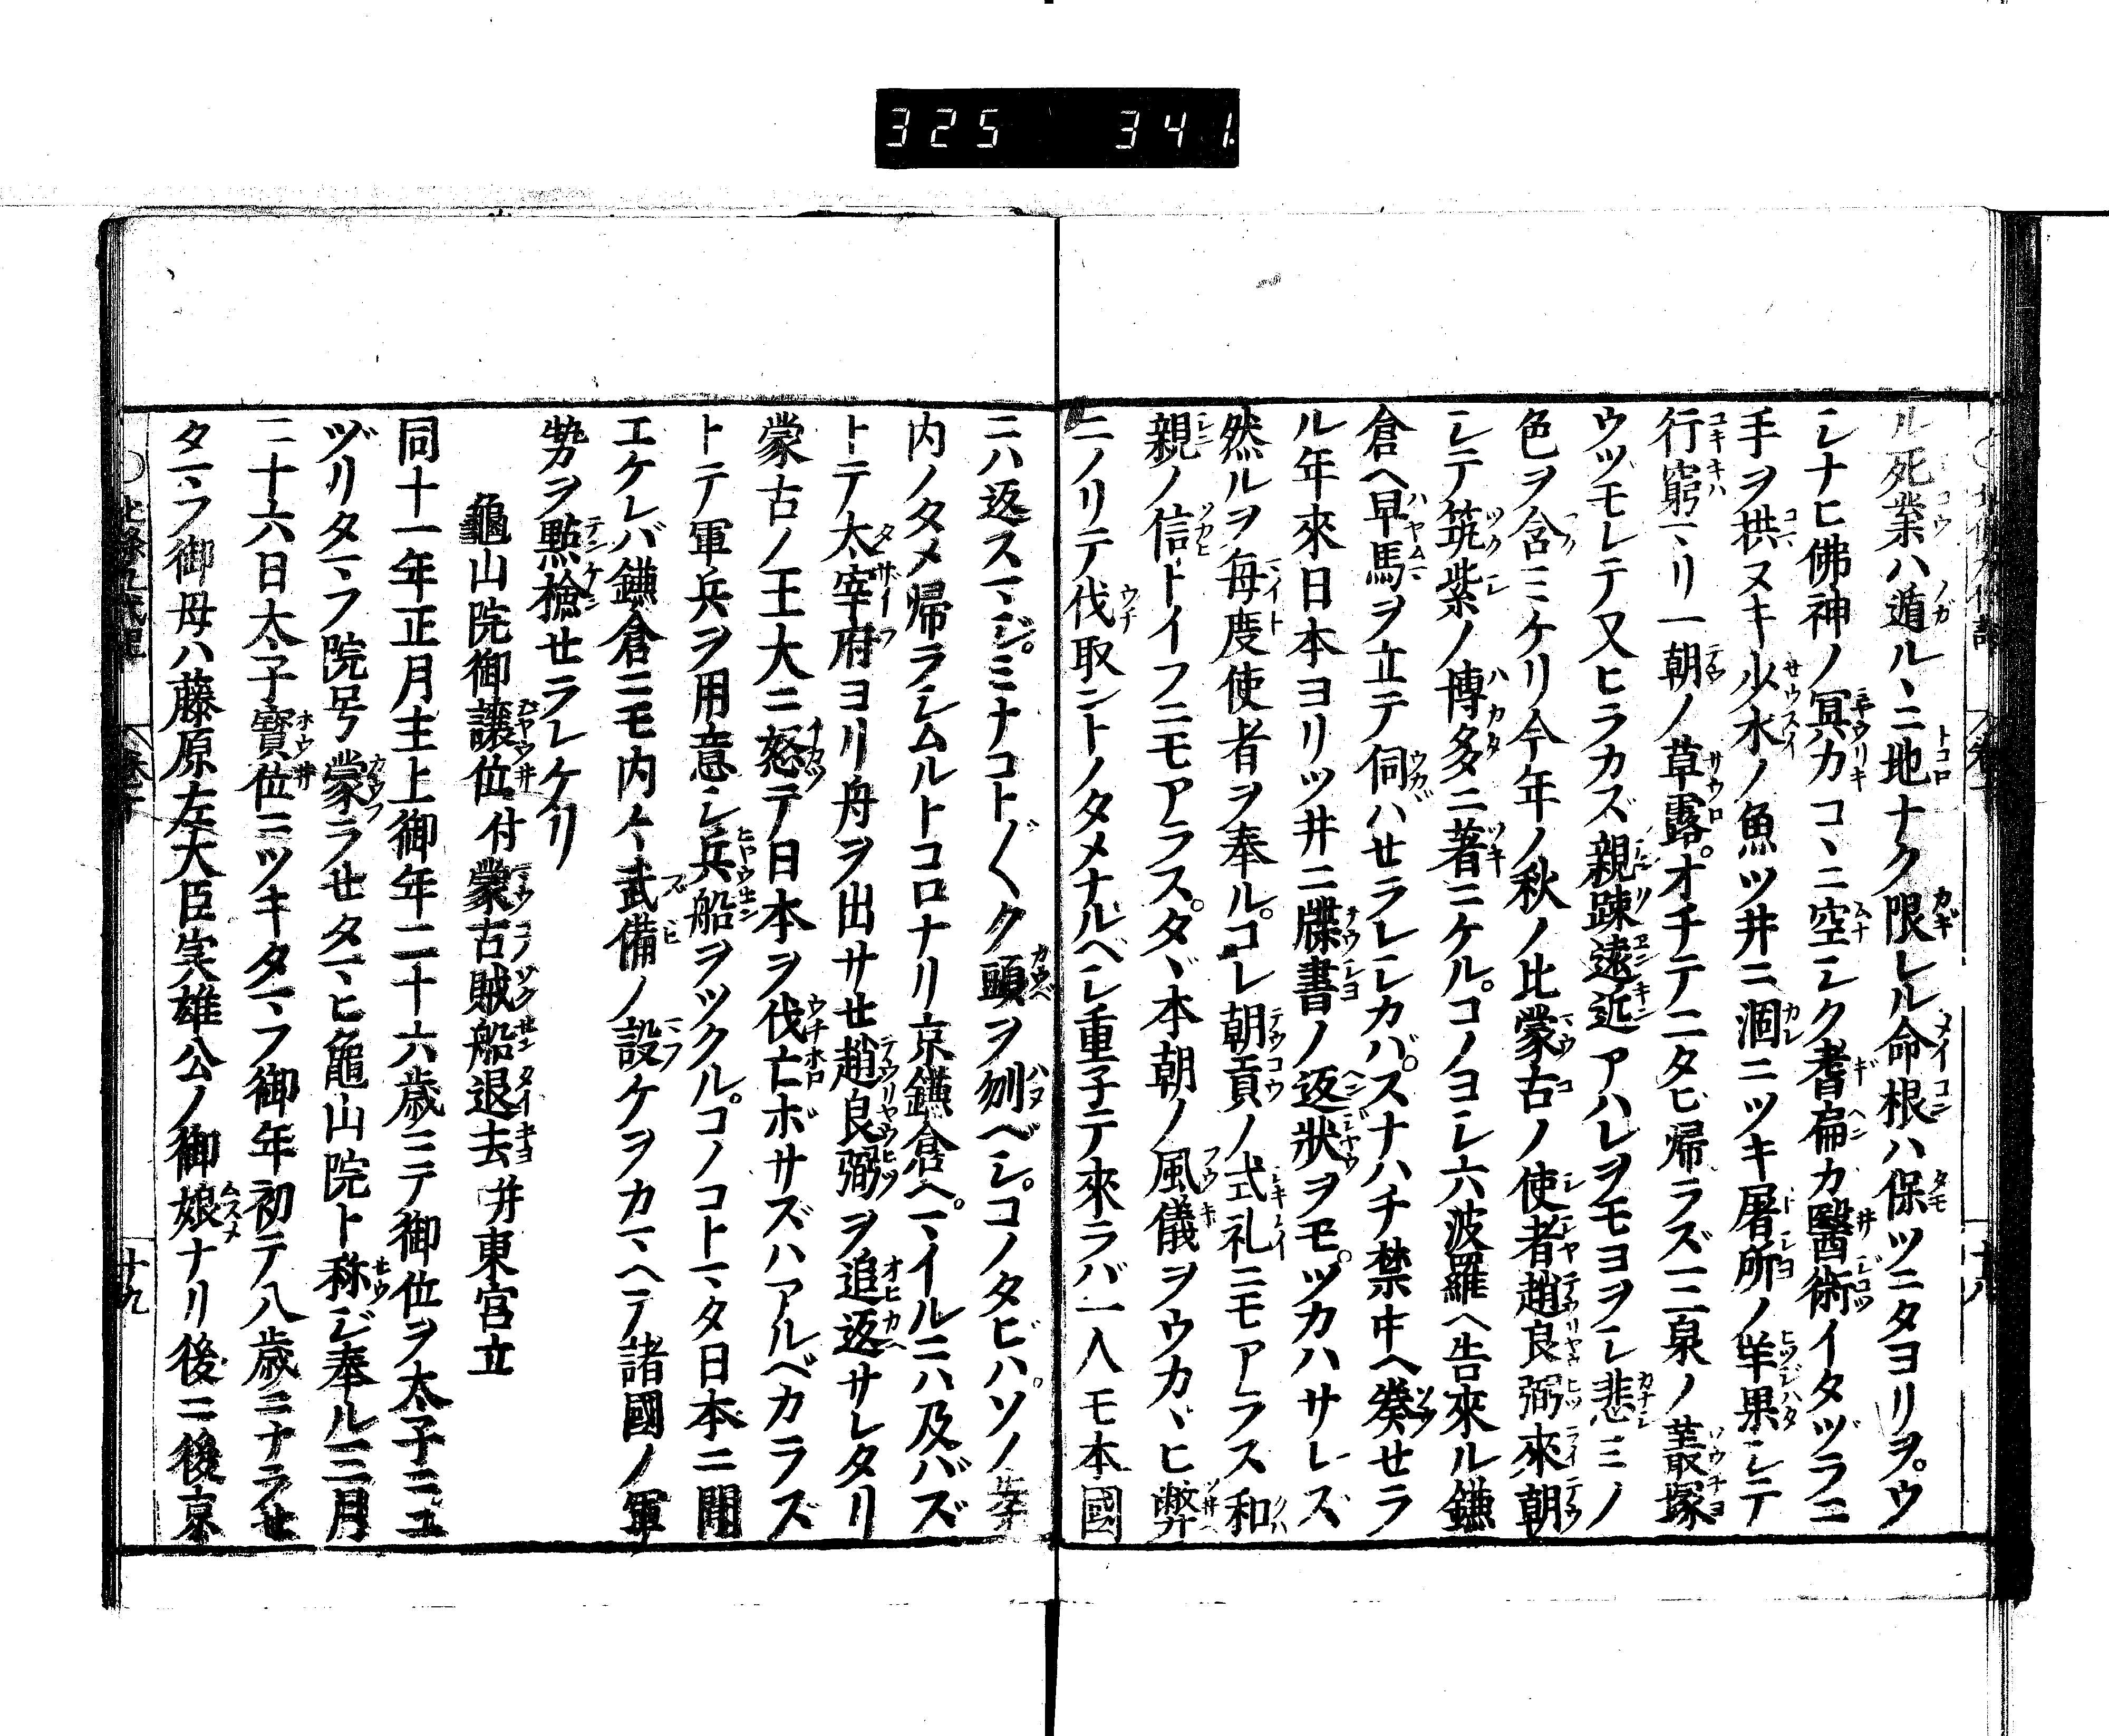 325 341
ル死業ハ遁ルヽニ地ナク限レル命根ハ保ツニタヨリヲウ
シナヒ佛神ノ冥カコヽニ空シク耆扁カ醫術イタヅラニ
手ヲ拱ヌキ少水ノ魚ツ井ニ涸ニツキ屠所ノ羊果シテ
行窮マリ一朝ノ草露オチテニタヒ帰ラズ三泉ノ叢塚
ウツモレテ又ヒラカズ親疎遠近アハレヲモヨヲシ悲ミノ
色ヲ含ミケリ今年ノ秋ノ比蒙古ノ使者趙良弼來朝
シテ筑紫ノ博多ニ著ニケルコノヨシ六波羅ヘ告來ル鎌
倉ヘ早馬ヲ立テ伺ハセラレシカバスナハチ禁中ヘ奏セラ
ル年來日本ヨリツ井ニ牒書ノ返狀ヲモツカハサレズ
然ルヲ毎度使者ヲ奉ルコレ朝貢ノ式礼ニモアラス和
親ノ信トイフニモアラスタヾ本朝ノ風儀ヲウカヾヒ弊
ニノリテ伐取ントノタメナルベシ重子テ來ラバ一人モ本國
ニハ返スマジミナコト〴〵ク頭ヲ刎ベシコノタビハソノ
内ノタメ帰ラシムルトコロナリ京鎌倉ヘマイルニハ及バズ
トテ太宰府ヨリ舟ヲ出サセ趙良弼ヲ追返サレタリ
蒙古ノ王大ニ怒テ日本ヲ伐亡ボサズハアルベカラズ
トテ軍兵ヲ用意シ兵船ヲツクルコノコトマタ日本ニ聞
エケレバ鎌倉ニモ内々武備ノ設ケヲカマヘテ諸國ノ軍
勢ヲ點檢セラレケリ
龜山院御譲位付蒙古賊船退去并東宮立
同十一年正月主上御年二十六歳ニテ御位ヲ太子ニユ
ヅリタマフ院号蒙ラセタマヒ龜山院ト称ジ奉ル三月
二十六日太子寶位ニツキタマフ御年初テ八歳ニナラセ
タマフ御母ハ藤原左大臣実雄公ノ御娘ナリ後ニ後京
十九